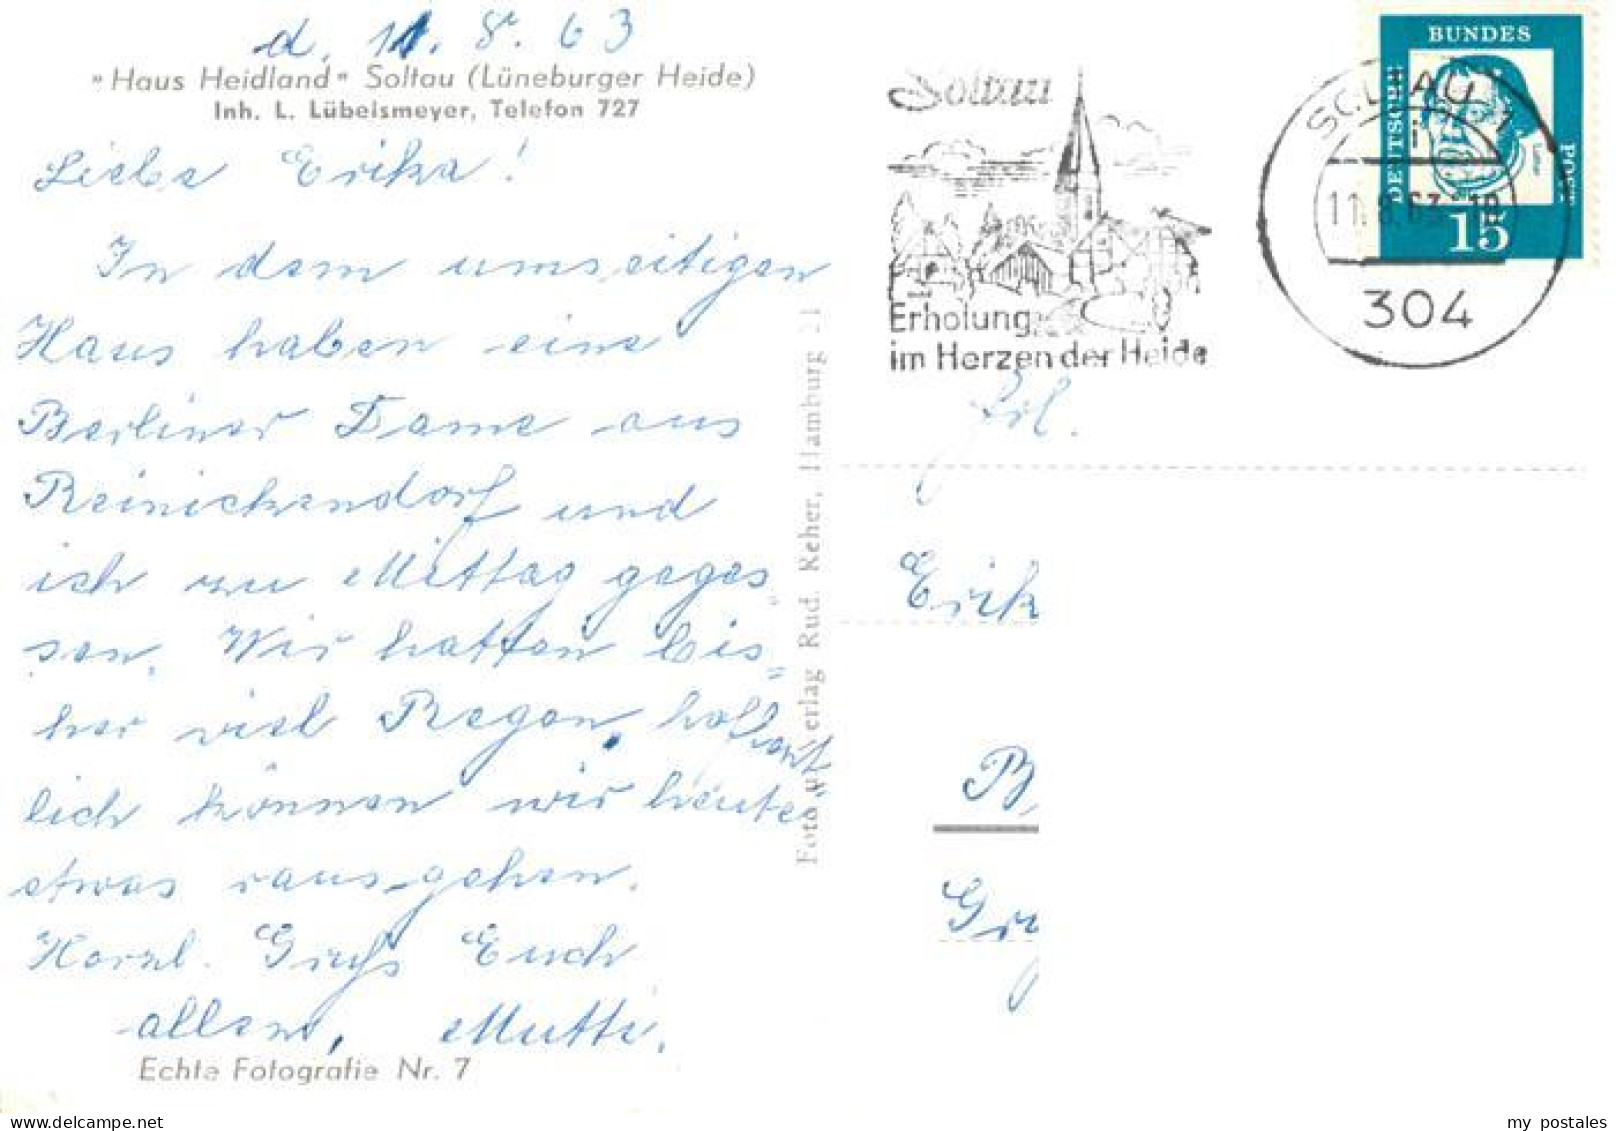 d. 11. 8. 63
"Haus Heidland" Soltau (Lüneburger Heide)
Inh. L. Lübelsmeyer, Telefon 727
Liebe Erika!
In dem umseitigen
Haus haben eine
Berliner Dame aus
Reinickendorf und
ich zu Mittag geges
sen. Wir hatten bis=
her viel Regen, hoffent
lich können wir heute
etwas rausgehen.
Herzl. Grüße Euch
allen, Mutti.
Echte Fotografie Nr. 7
Foto u. Verlag Rud. Reher, Hamburg 21
Soltau
Erholung
im Herzen der Heide
SOLTAU 1
11.8.63-18
304
BUNDES
DEUTSCHE
POST
Luther
15
Frl.
Erik
B
Gr
my postales